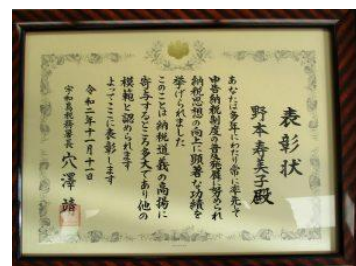 表彰状
野本寿美子殿
あなたは多年にわたり常に率先して
申告納税制度の普及発展に努められ
納税思想の向上に顕著な功績を
挙げられました
このことは納税道義の高揚に
寄与するところ多大であり他の
模範と認められます
よってここに表彰します
令和二年十一月十一日
宇和島税務署長 穴澤 靖